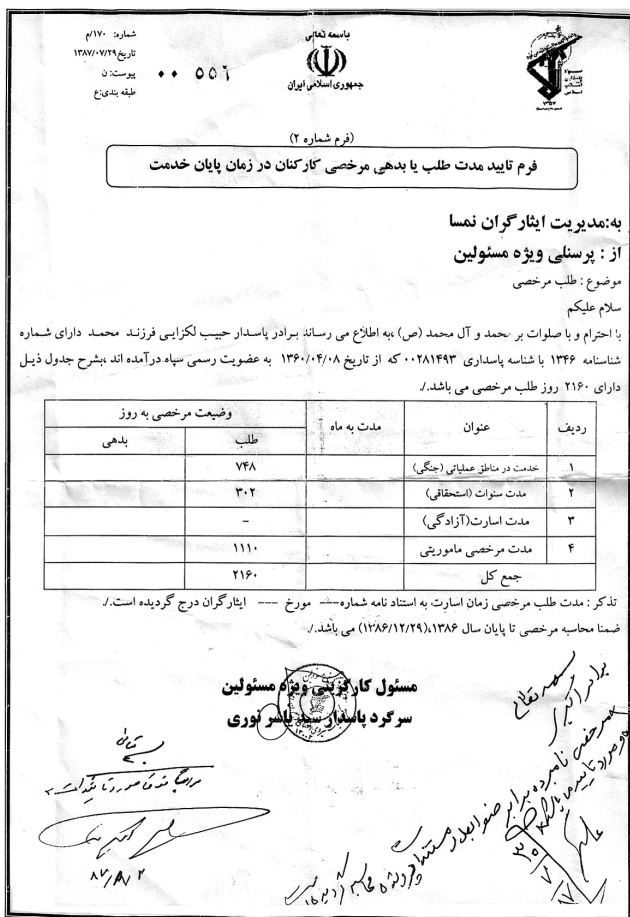 باسمه تعالی
جمهوری اسلامی ایران
شماره: ۱۷۰/م
تاریخ:۱۳۸۷/۰۷/۲۹
پیوست: ن
طبقه بندی:ع
۰۰ ۵۵۶
۱۳۵۷
(فرم شماره ۲)
فرم تایید مدت طلب یا بدهی مرخصی کارکنان در زمان پایان خدمت
به:مدیریت ایثارگران نمسا
از : پرسنلی ویژه مسئولین
موضوع : طلب مرخصی
سلام علیکم
با احترام و با صلوات بر محمد و آل محمد (ص) ،به اطلاع می رساند برادر پاسدار حبیب لکزایی فرزند محمد دارای شماره
شناسنامه ۱۳۴۶ با شناسه پاسداری ۰۰۲۸۱۴۹۳ که از تاریخ ۱۳۶۰/۰۴/۰۸ به عضویت رسمی سپاه درآمده اند ،بشرح جدول ذیل
دارای ۲۱۶۰ روز طلب مرخصی می باشد./.
ردیف عنوان مدت به ماه وضیعت مرخصی به روز
طلب بدهی
۱ خدمت در مناطق عملیاتی (جنگی) ۷۴۸
۲ مدت سنوات (استحقاقی) ۳۰۲
۳ مدت اسارت(آزادگی) –
۴ مدت مرخصی ماموریتی ۱۱۱۰
جمع کل ۲۱۶۰
تذکر : مدت طلب مرخصی زمان اسارت به استناد نامه شماره--- مورخ --- ایثارگران درج گردیده است./.
ضمنا محاسبه مرخصی تا پایان سال ۱۳۸۶،(۱۳۸۶/۱۲/۲۹) می باشد./.
مسئول کارگزینی ویژه مسئولین
سرگرد پاسدار سید یاسر نوری
بسمه تعالی
برادر اکبری
مرخصی نامبرده برابر ضوابط و مستندات